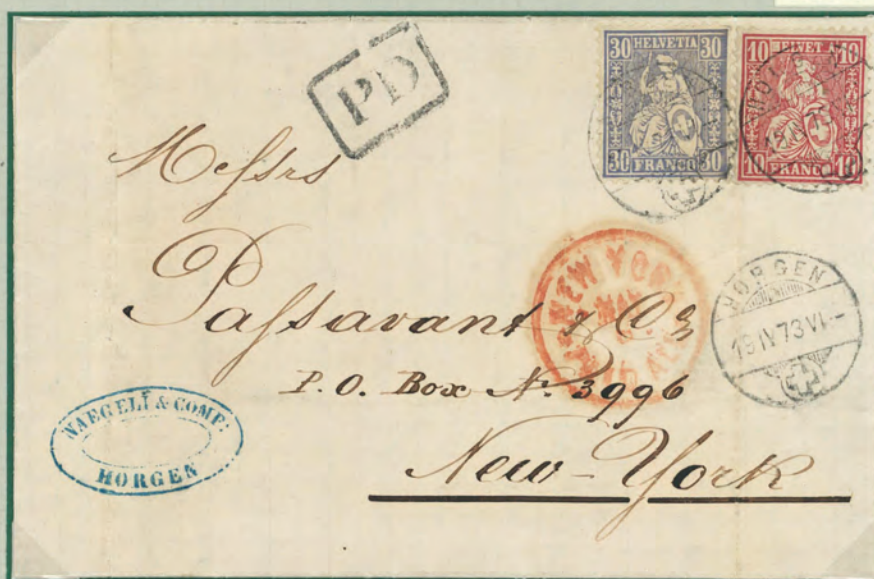 PD
30 HELVETIA 30
30 FRANCO 30
10 HELVETIA 10
10 FRANCO 10
Messrs
Passavant & Co
P.O. Box No. 3996
New-York
NEW YORK
PAID ALL
HORGEN
19 IV 73 VI-
NAEGELI & COMP:
HORGEN